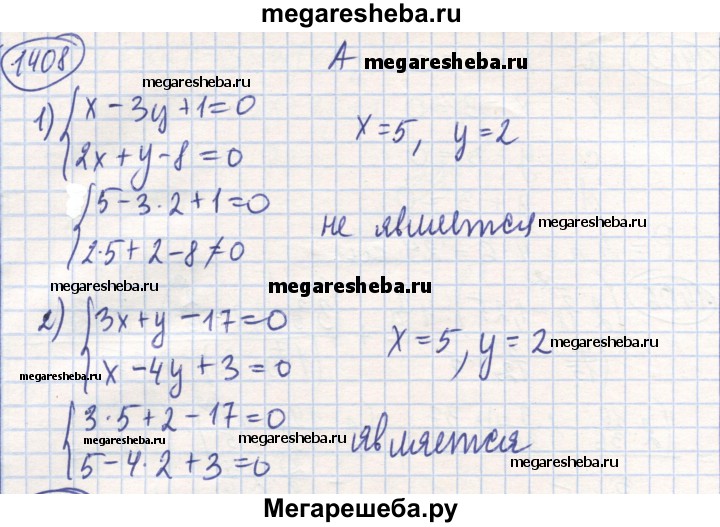 megaresheba.ru
1408
А megaresheba.ru
megaresheba.ru
1) { x - 3y + 1 = 0
2x + y - 8 = 0
x = 5, y = 2
{ 5 - 3 · 2 + 1 = 0
2 · 5 + 2 - 8 ≠ 0
не является megaresheba.ru
megaresheba.ru megaresheba.ru megaresheba.ru
2) { 3x + y - 17 = 0
x - 4y + 3 = 0
x = 5, y = 2 megaresheba.ru
megaresheba.ru
{ 3 · 5 + 2 - 17 = 0
megaresheba.ru megaresheba.ru
5 - 4 · 2 + 3 = 0
является
megaresheba.ru
Мегарешеба.ру